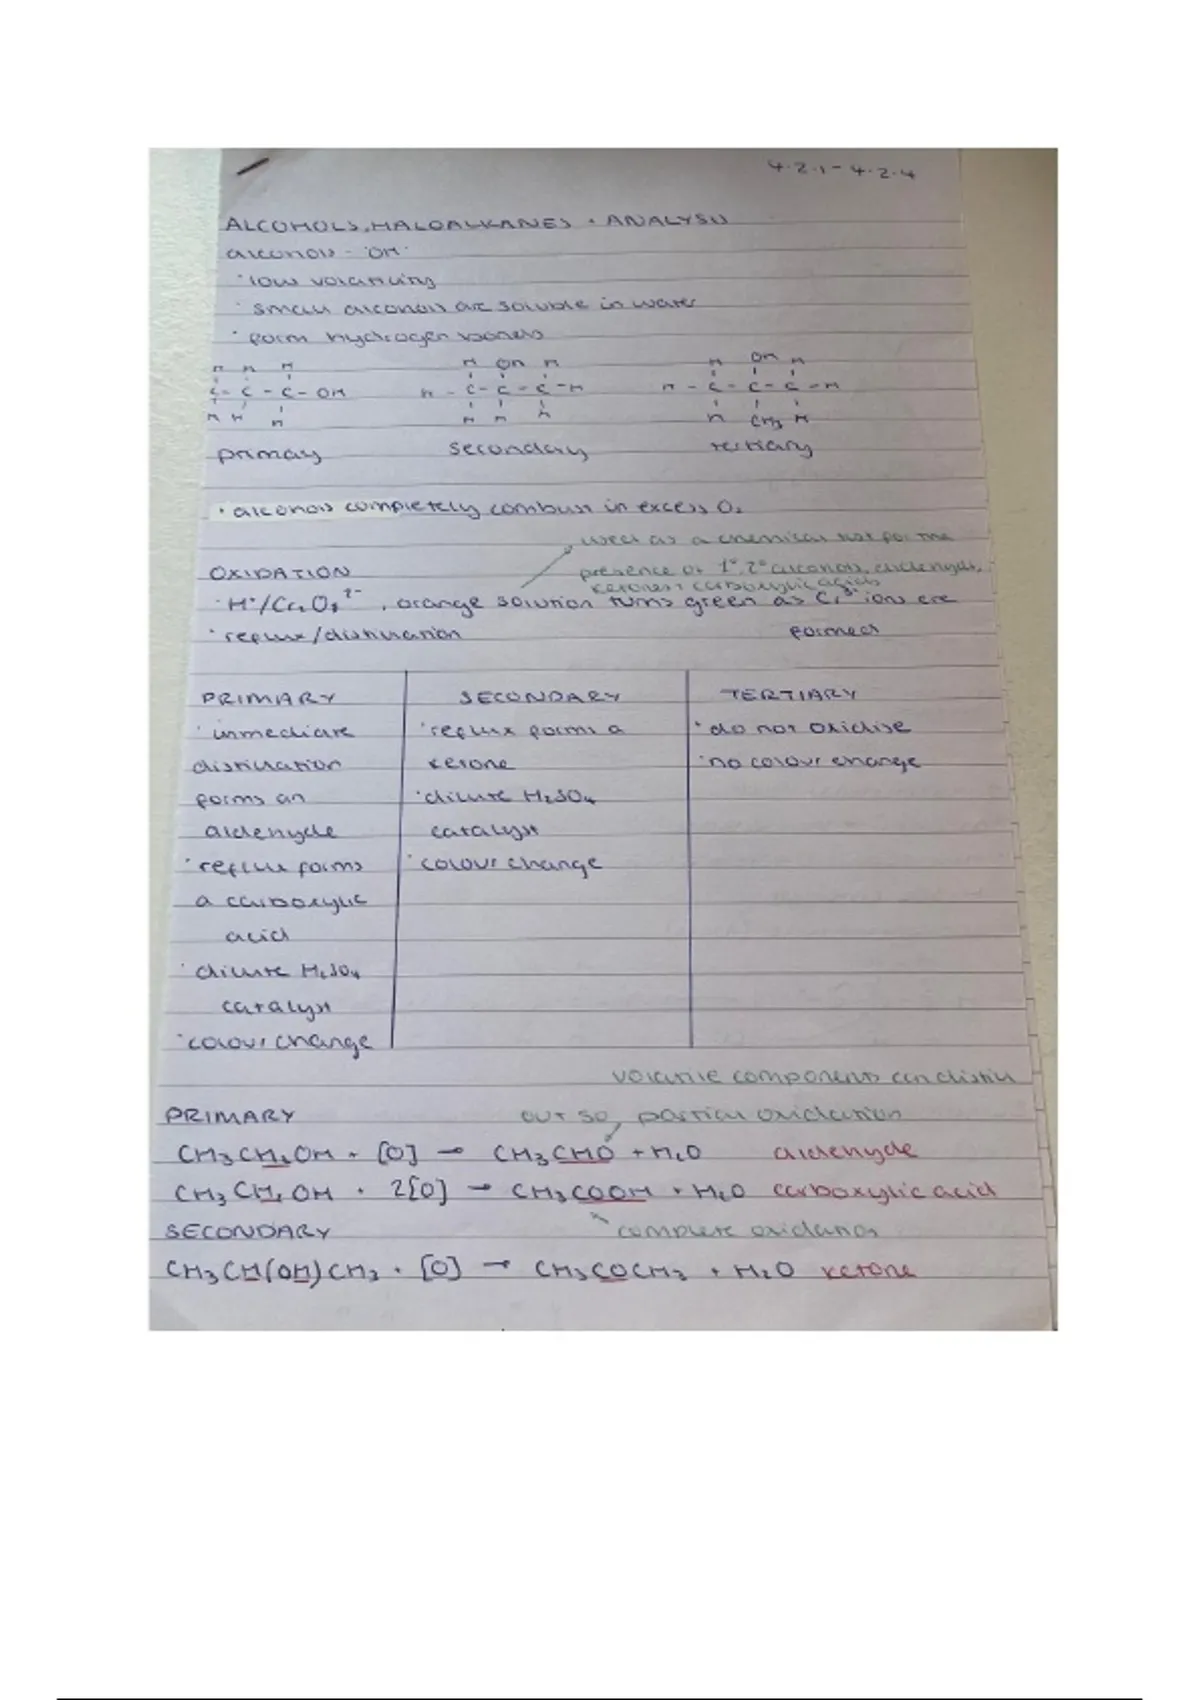 4.2.1-4.2.4
ALCOHOLS, HALOALKANES + ANALYSIS
alcohols - 'OH'
· low volatility
· small alcohols are soluble in water
· form hydrogen bonds
H H H
H OH H
H OH H
C - C - C - OH
H - C - C - C - H
H - C - C - C - H
H H H
H H H
H CH3 H
primary secondary tertiary
· alcohols completely combust in excess O2
used as a chemical test for the
OXIDATION presence of 1°, 2° alcohols, aldehydes,
ketones + carboxylic acids
· H+/Cr2O7 2-, orange solution turns green as Cr3+ ions are
· reflux/distillation formed
PRIMARY SECONDARY TERTIARY
· immediate · reflux forms a · do not oxidise
distillation ketone · no colour change
forms an · dilute H2SO4
aldehyde catalyst
· reflux forms · colour change
a carboxylic
acid
· dilute H2SO4
catalyst
· colour change
volatile components can distil
PRIMARY out so partial oxidation
CH3CH2OH + [O] → CH3CHO + H2O aldehyde
CH3CH2OH + 2[O] → CH3COOH + H2O carboxylic acid
SECONDARY complete oxidation
CH3CH(OH)CH3 + [O] → CH3COCH3 + H2O ketone